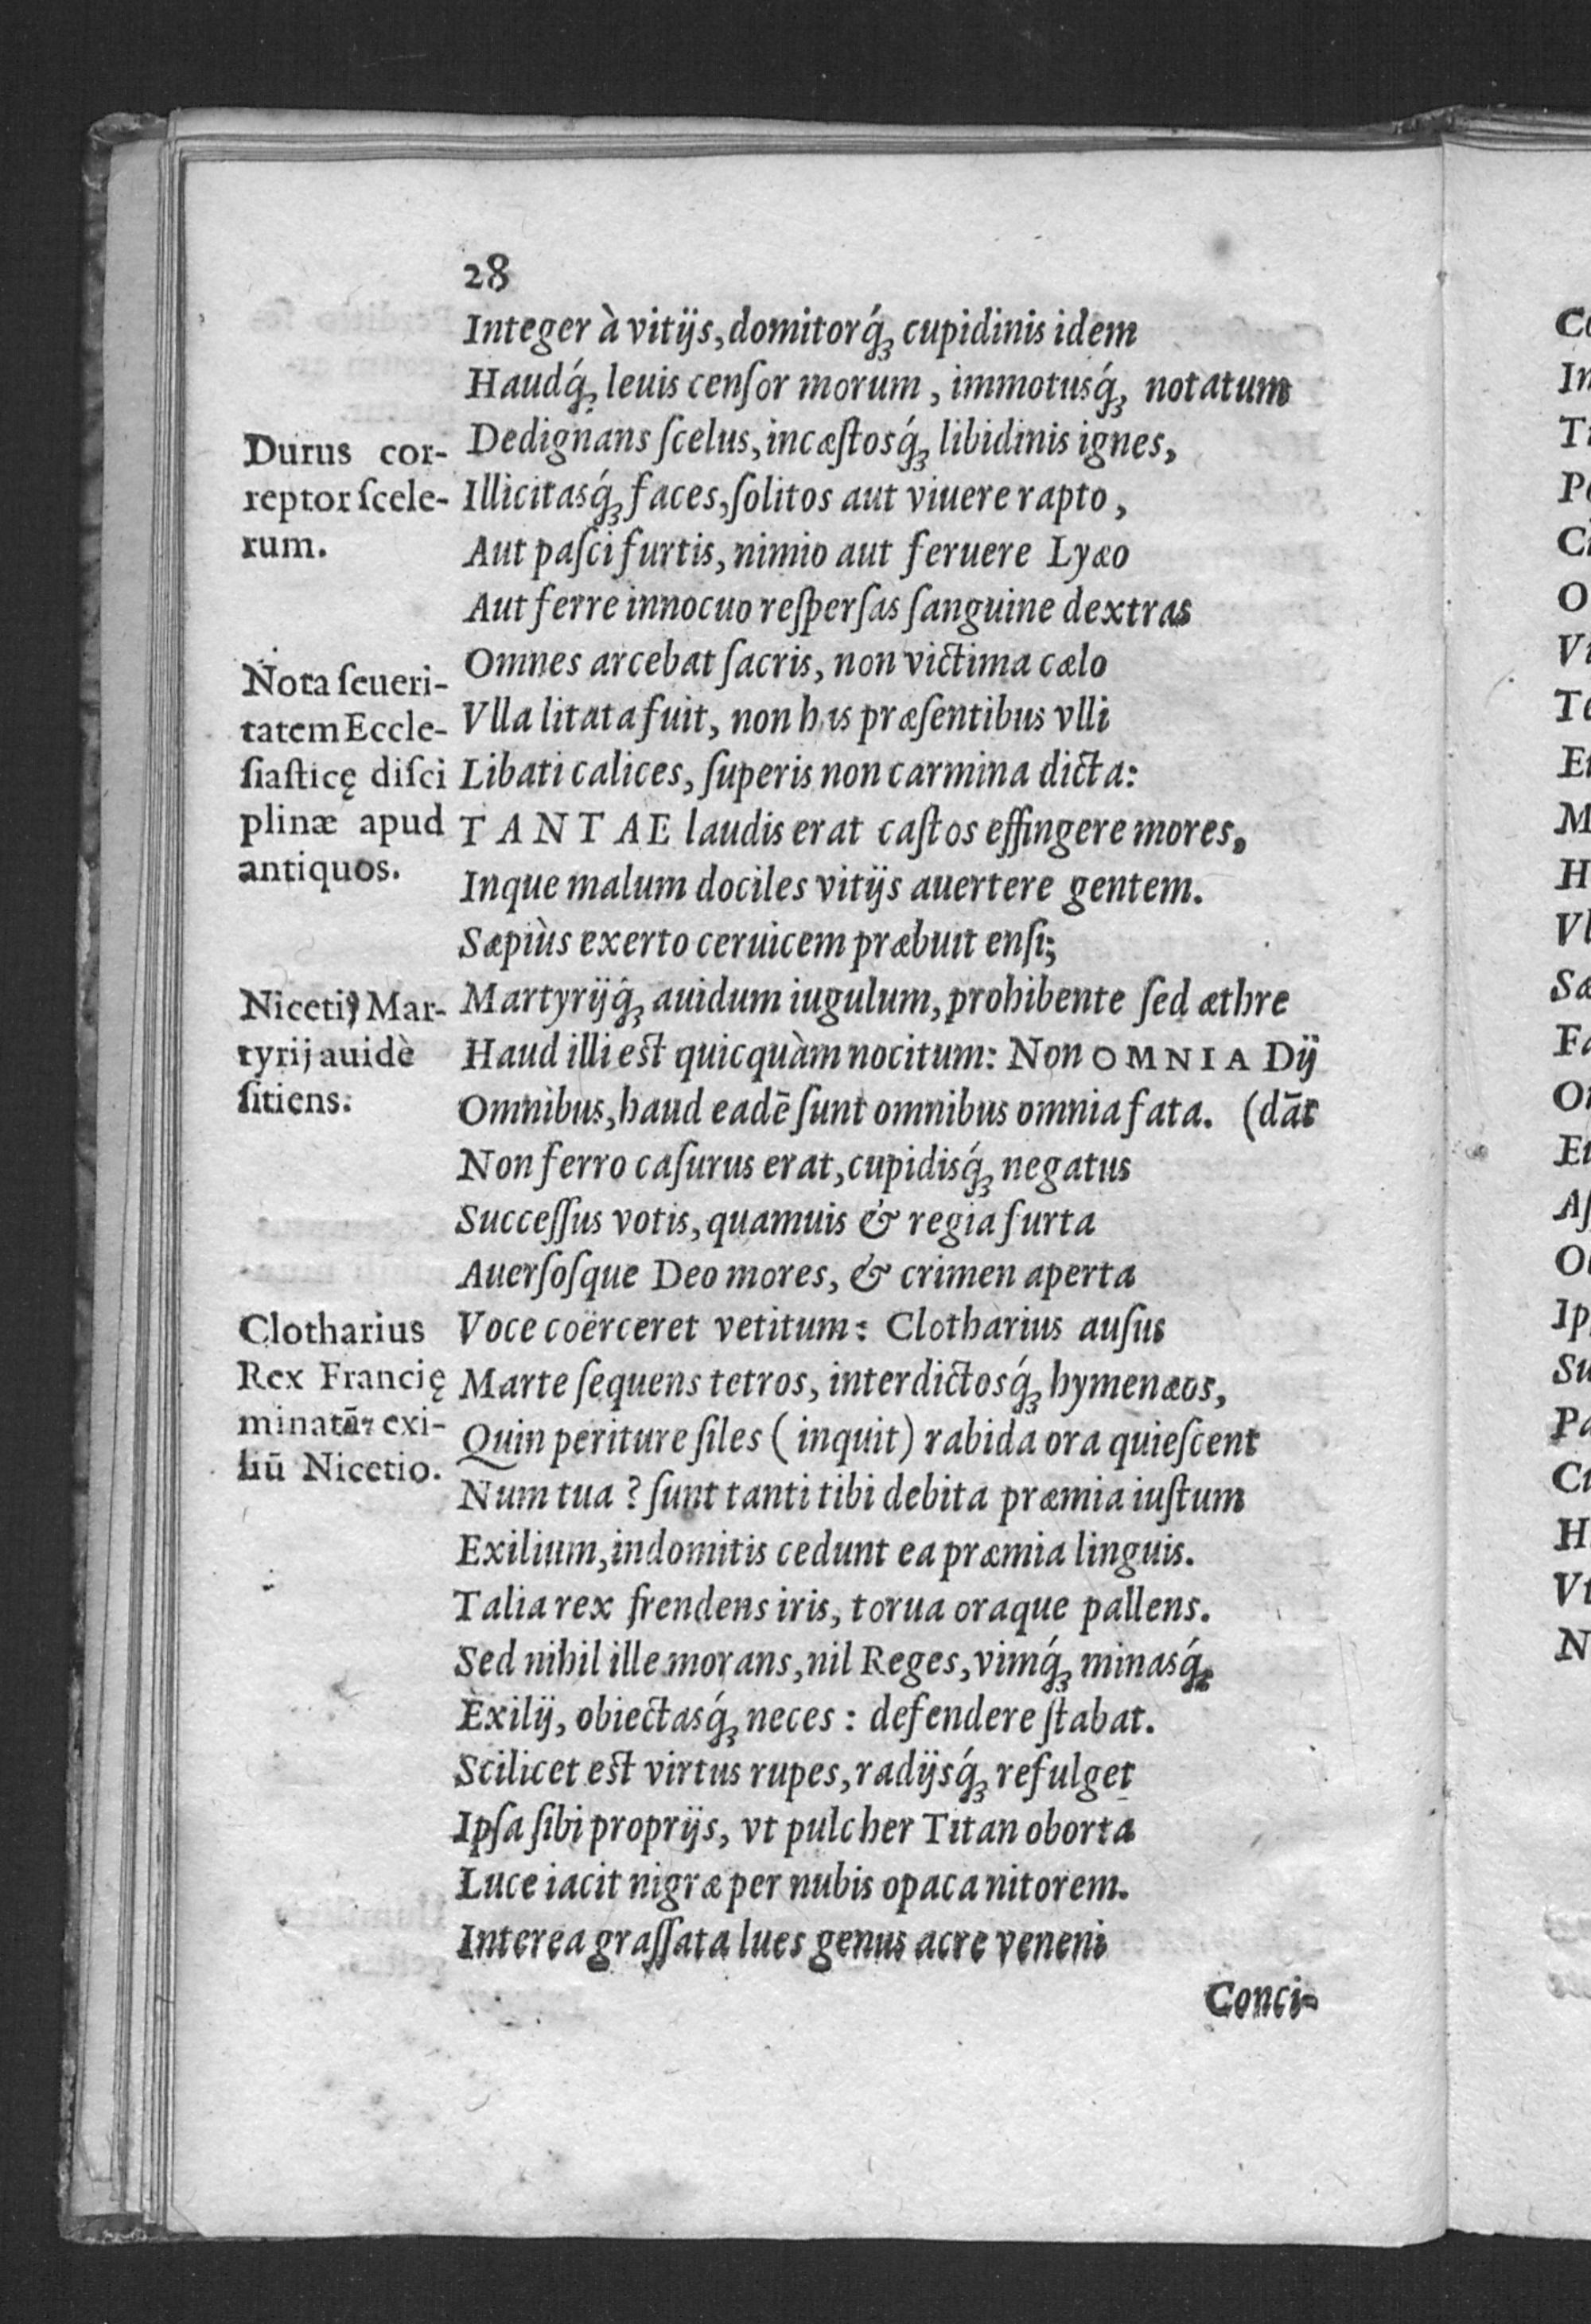 28
Integer à vitijs, domitorq́ꝫ cupidinis idem
Haudq́ꝫ leuis cenſor morum, immotusq́ꝫ notatum
Dedignans ſcelus, incæſtosq́ꝫ libidinis ignes,
Illicitasq́ꝫ faces, ſolitos aut viuere rapto,
Aut paſci furtis, nimio aut feruere Lyæo
Aut ferre innocuo reſperſas ſanguine dextras
Omnes arcebat ſacris, non victima cælo
Vlla litata fuit, non his præſentibus vlli
Libati calices, ſuperis non carmina dicta:
TANTAE laudis erat caſtos effingere mores,
Inque malum dociles vitijs auertere gentem.
Sæpiùs exerto ceruicem præbuit enſi;
Martyrijq́ꝫ auidum iugulum, prohibente ſed æthre
Haud illi est quicquàm nocitum: Non OMNIA Dij
Omnibus, haud eadē ſunt omnibus omnia fata. (dāt
Non ferro caſurus erat, cupidisq́ꝫ negatus
Succeſſus votis, quamuis & regia furta
Auerſoſque Deo mores, & crimen aperta
Voce coërceret vetitum: Clotharius auſus
Marte ſequens tetros, interdictosq́ꝫ hymenæos,
Quin periture ſiles (inquit) rabida ora quieſcent
Num tua? ſunt tanti tibi debita præmia iuſtum
Exilium, indomitis cedunt ea præmia linguis.
Talia rex frendens iris, torua oraque pallens.
Sed nihil ille morans, nil Reges, vimq́ꝫ minasq́ꝫ
Exilij, obiectasq́ꝫ neces: defendere ſtabat.
Scilicet est virtus rupes, radijsq́ꝫ refulget
Ipſa ſibi proprijs, vt pulcher Titan oborta
Luce iacit nigræ per nubis opaca nitorem.
Interea graſſata lues genus acre veneni
Conci-
Durus cor-
reptor ſcele-
rum.
Nota ſeueri-
tatem Eccle-
ſiaſticę diſci
plinæ apud
antiquos.
Nicetiꝰ Mar-
tyrij auidè
ſitiens.
Clotharius
Rex Francię
minatur exi-
liū Nicetio.